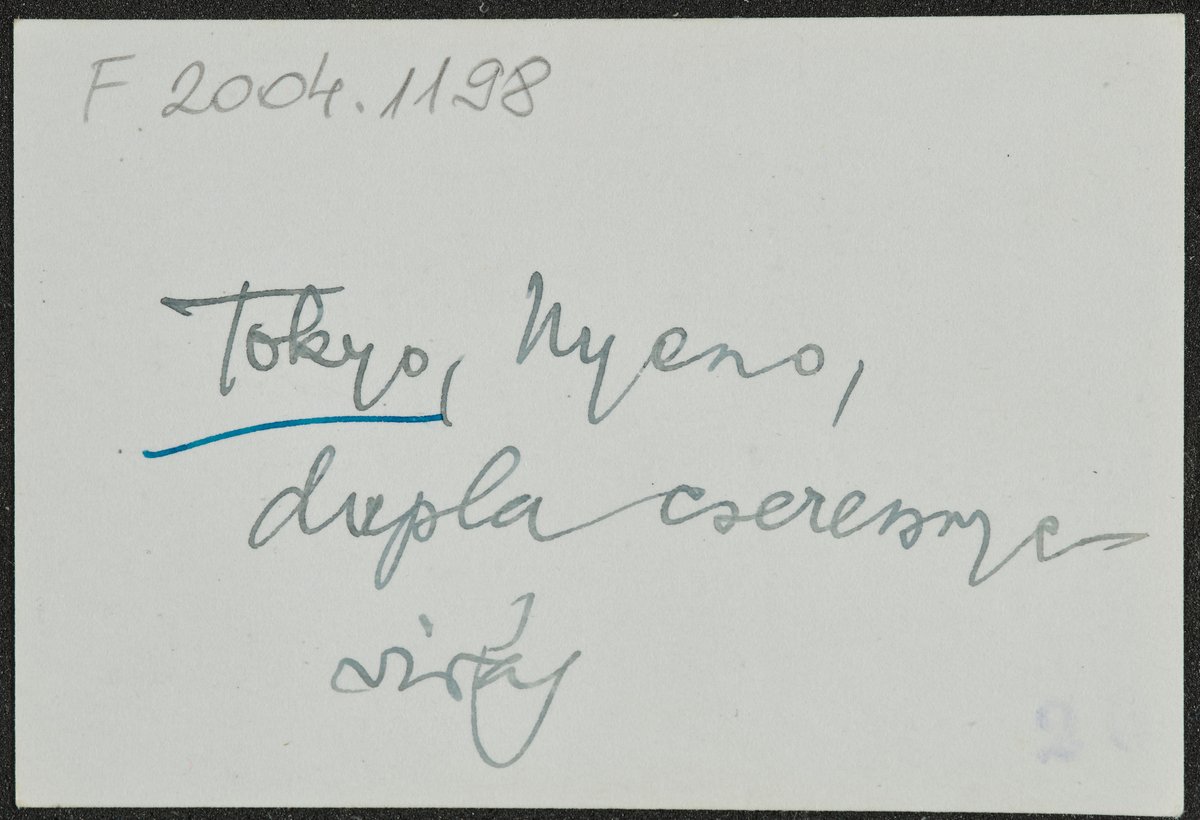 F 2004.1198
Tokyo, Uyeno,
dupla cseresnye-
virág